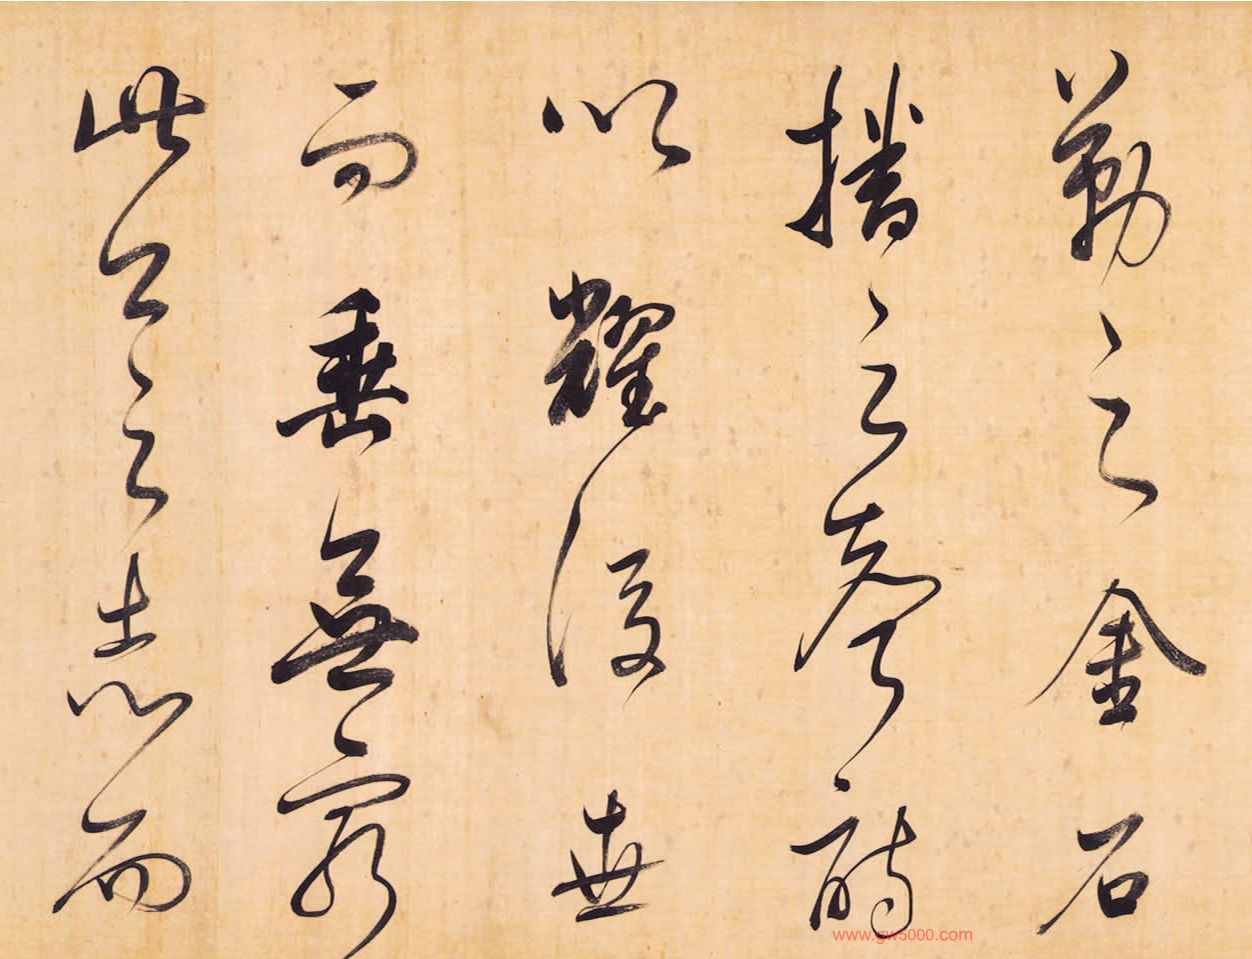 勒之金石
播之聲詩
以耀後世
而垂無窮
此公之志而
www.gw5000.com